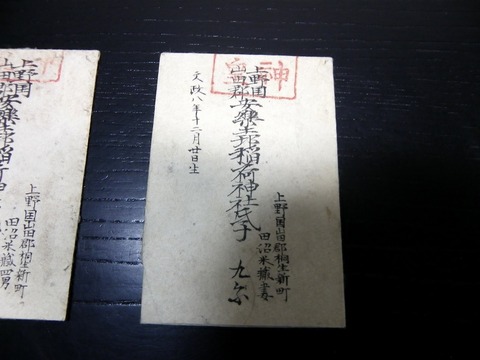 上野国
山田郡
安楽土邨稲荷神社氏子
上野国山田郡桐生新町
田沼米蔵妻
文政八年十二月廿日生
神
上野国
山田郡
安楽土邨稲荷神
上野国山田郡桐生新町
田沼米蔵四男